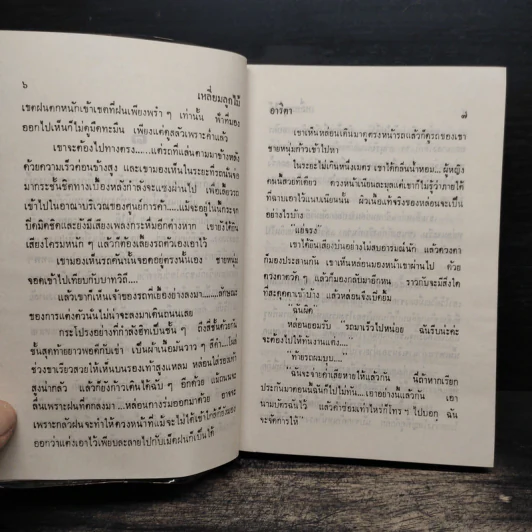 ๖
เหลี่ยมลูกไม้
เขตฝนตกหนักเข้าเขตที่ฝนเพียงพรำ ๆ เท่านั้น ฟ้าที่มอง
ออกไปเห็นก็ไม่ดูมืดทะมึน เพียงแค่ดูสลัวเพราะค่ำแล้ว
เขาจะต้องไปทางตรง.....แต่รถที่แล่นตามมาข้างหลัง
ด้วยความเร็วค่อนข้างสูง และเขามองเห็นในระยะที่รถนั้น
มากระชั้นชิดทางเบื้องหลังกำลังจะแซงผ่านไป เพื่อเลี้ยวรถ
เข้าไปในอาณาบริเวณของศูนย์การค้า.....แม้จะอยู่ในกระจก
ปิดมิดชิดและยังมีเสียงเพลงกระหึ่มอีกต่างหาก เขายังได้ยิน
เสียงโครมหนัก ๆ แล้วก็ต้องเลี้ยงรถตัวเองเอาไว้
เขามองเห็นรถคันนั้นจอดอยู่ตรงนั้นเอง ชายหนุ่ม
จอดเข้าไปเทียบกับบาทวิถี....
แล้วเขาก็เห็นเจ้าของรถที่เยื้องย่างลงมา.....ลักษณะ
ของการแต่งตัวนั้นไม่น่าจะลงมาเดินถนนเลย
กระโปรงอย่างที่กำลังฮิทเป็นชั้น ๆ ถึงสี่ชั้นด้วยกัน
ชั้นสุดท้ายยาวพอดีกับเข่า เป็นผ้าเนื้อมันวาว ๆ สีดำ...โผล่
ช่วงขาเรียวสวยให้เห็นบนรองเท้าสูงแหลม หล่อนใส่รองเท้า
สูงน่ากลัว แล้วก็ยังก้าวเดินได้ฉับ ๆ อีกด้วย แม้ถนนจะ
ลื่นเพราะฝนที่ตกลงมา...หล่อนกางร่มออกมาด้วย อาจจะ
เพราะกลัวฝนจะทำให้ดวงหน้าที่แม้จะไม่ได้เข้าใกล้
ออกว่าแต่งเอาไว้เพียบละลายไปกับเม็ดฝนก็เป็นได้
อาริตา
๗
เขาเห็นหล่อนเดินมาดูตรงหน้ารถแล้วก็ดูรถของเขา
ชายหนุ่มก้าวเข้าไปหา
ในระยะไม่เกินหนึ่งเมตร เขาได้กลิ่นน้ำหอม... ผู้หญิง
คนนี้สวยทีเดียว ดวงหน้าเนียนละมุลแต่เขาก็ไม่รู้ว่าภายใต้
ที่ฉาบเอาไว้แนบเนียนนั้น ผิวเนื้อแท้จริงของหล่อนจะเป็น
อย่างไรบ้าง
"แย่จริง"
เขาได้ยินเสียงบ่นอย่างไม่สบอารมณ์นัก แล้วดวงตา
ก็มองประสานกัน เขาเห็นหล่อนมองหน้าเขาผ่านไป ด้วย
ดวงตาตวัด ๆ แล้วก็มองกลับมาอีกหน ราวกับจะมีสิ่งใด
ที่สะดุดตาเข้าบ้าง แล้วหล่อนจึงเปิดยิ้ม
"ฉันผิด"
หล่อนยอมรับ "รถมาเร็วไปหน่อย ฉันรีบน่ะค่ะ
จะต้องไปให้ทันงานแต่ง..."
"ท้ายรถผมบุบ..."
"ฉันจะจ่ายค่าเสียหายให้แล้วกัน นี่ถ้าหากเรียก
ประกันมาตอนนี้ฉันก็ไปไม่ทัน...เอาอย่างนี้แล้วกัน เอา
นามบัตรฉันไว้ แล้วค่าซ่อมเท่าไหร่ก็โทร ๆ ไปบอก ฉัน
จะจัดการให้"